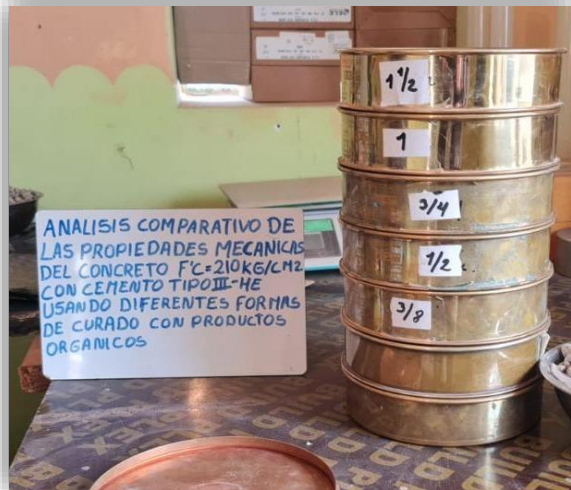 ELE
ANALISIS COMPARATIVO DE
LAS PROPIEDADES MECANICAS
DEL CONCRETO F'C=210KG/CM2
CON CEMENTO TIPO III-HE
USANDO DIFERENTES FORMAS
DE CURADO CON PRODUCTOS
ORGANICOS
1 1/2
1
3/4
1/2
3/8